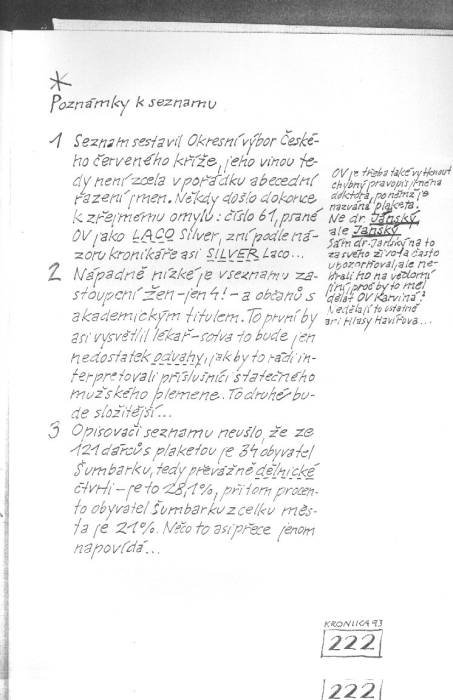 *
Poznámky k seznamu
1 Seznam sestavil Okresní výbor České-
ho červeného kříže, jeho vinou te-
dy není zcela v pořádku abecední
řazení jmen. Někdy došlo dokonce
k zřejmému omylu: číslo 61, psané
OV jako LACO Silver, zní podle ná-
zoru kronikáře asi SILVER Laco...
2 Nápadně nízké je v seznamu za-
stoupení žen - jen 4! - a občanů s
akademickým titulem. To první by
asi vysvětlil lékař - sotva to bude jen
nedostatek odvahy, jak by to rádi in-
terpretovali příslušníci statečného
mužského plemene. To druhé bu-
de složitější...
3 Opisovači seznamu neušlo, že ze
121 dárců s plaketou je 34 obyvatel
Šumbarku, tedy převážně dělnické
čtvrti - je to 28,1%, přitom procen-
to obyvatel Šumbarku z celku měs-
ta je 21%. Něco to asi přece jenom
napovídá...
OV je třeba také vytknout
chybný pravopis jména
doktora, po němž je
nazvána plaketa.
Ne dr. Jánský,
ale Janský.
Sám dr. Janský na to
za svého života často
upozorňoval, ale ne-
brali ho na vědomí
jiní, proč by to měl
dělat OV Karviná?
Nedělají to ostatně
ani Hlasy Havířova...
KRONIKA 93
222
222